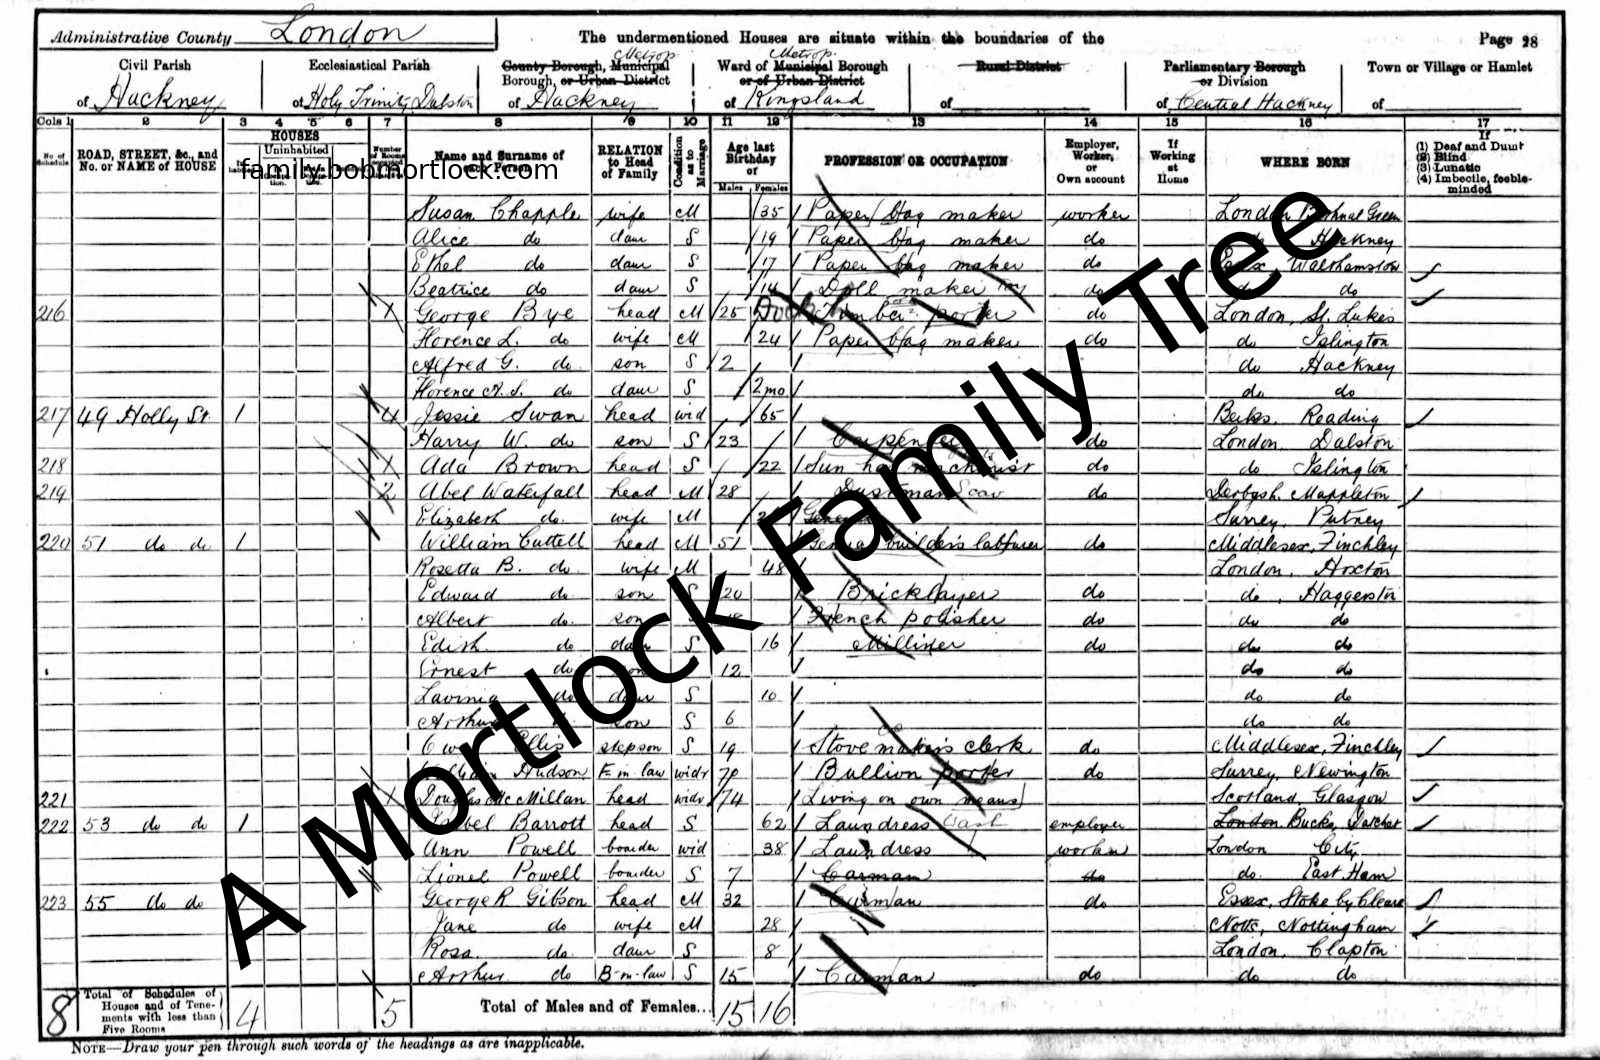 Administrative County London
The undermentioned Houses are situate within the boundaries of the
Page 28
Civil Parish
of Hackney
Ecclesiastical Parish
of Holy Trinity Dalston
Metrop.
County Borough, Municipal
Borough, or Urban District
of Hackney
Metrop.
Ward of Municipal Borough
or of Urban District
of Kingsland
Rural District
of
Parliamentary Borough
or Division
of Central Hackney
Town or Village or Hamlet
of
Cols 1 2 3 4 5 6 7 8 9 10 11 12 13 14 15 16 17
No. of Schedule
ROAD, STREET, &c., and
No. or NAME of HOUSE
HOUSES
Uninhabited
Name and Surname of
each Person
RELATION
to Head
of Family
Condition as to Marriage
Age last
Birthday
of
Males Females
PROFESSION OR OCCUPATION
Employer,
Worker,
or
Own account
If
Working
at
Home
WHERE BORN
If
(1) Deaf and Dumb
(2) Blind
(3) Lunatic
(4) Imbecile, feeble-
minded
family.bobmortlock.com
Susan Chapple wife M 35 Paper bag maker worker London Bethnal Green
Alice do daur S 19 Paper bag maker do do Hackney
Ethel do daur S 17 Paper bag maker do Essex, Walthamstow
Beatrice do daur S 14 Doll maker toy do do do
216 George Bye head M 25 Dock Timber porter do London, St. Lukes
Florence L. do wife M 24 Paper bag maker do do Islington
Alfred G. do son S 2 do Hackney
Florence A. S. do daur S 2 mo do do
217 49 Holly St 1 4 Jessie Swan head wid 65 Berks. Reading
Harry W. do son S 23 Carpenter do London. Dalston
218 1 Ada Brown head S 22 Sun hat machinist do do Islington
219 2 Abel Waterfall head M 28 Dustman Scav do Derbysh. Mappleton
Elizabeth do wife M Surrey. Putney
220 51 do do 1 William Cuttell head M 51 General builder's labourer do Middlesex, Finchley
Rosetta B. do wife M 48 London. Hoxton
Edward do son S 20 Bricklayer do do, Haggerston
Albert do son French polisher do do do
Edith do daur S 16 Milliner do do do
Ernest do son 12 do do
Lavinia do daur S 10 do do
Arthur son S 6 do do
Ellis stepson S 19 Stove maker's clerk do Middlesex, Finchley
William Hudson F-in-law widr 70 Bullion porter do Surrey, Newington
221 1 Douglas McMillan head widr 74 Living on own means Scotland, Glasgow
222 53 do do 1 Isabel Barrott head S 62 Laundress Wash employer London Bucks, Datchet
Ann Powell boarder wid 38 Laundress worker London City
Lionel Powell boarder S 7 Carman do do. East Ham
223 55 do do 1 George R Gibson head M 32 Carman do Essex, Stoke by Cleare
Jane do wife M 28 Notts, Nottingham
Rosa do daur S 8 London. Clapton
Arthur do B-in-law S 15 Carman do do do
A Mortlock Family Tree
8 Total of Schedules of
Houses and of Tene-
ments with less than
Five Rooms
4 5 Total of Males and of Females... 15 16
NOTE—Draw your pen through such words of the headings as are inapplicable.